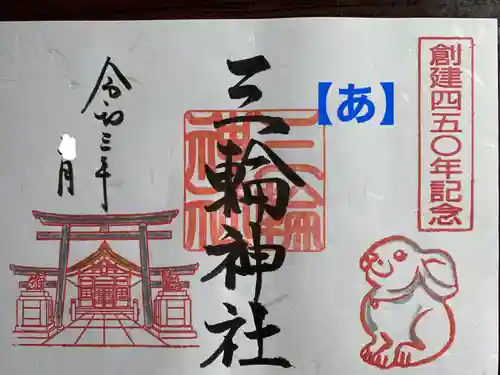 創建四五〇年記念
【あ】
三輪神社
三輪神社
令和三年
月